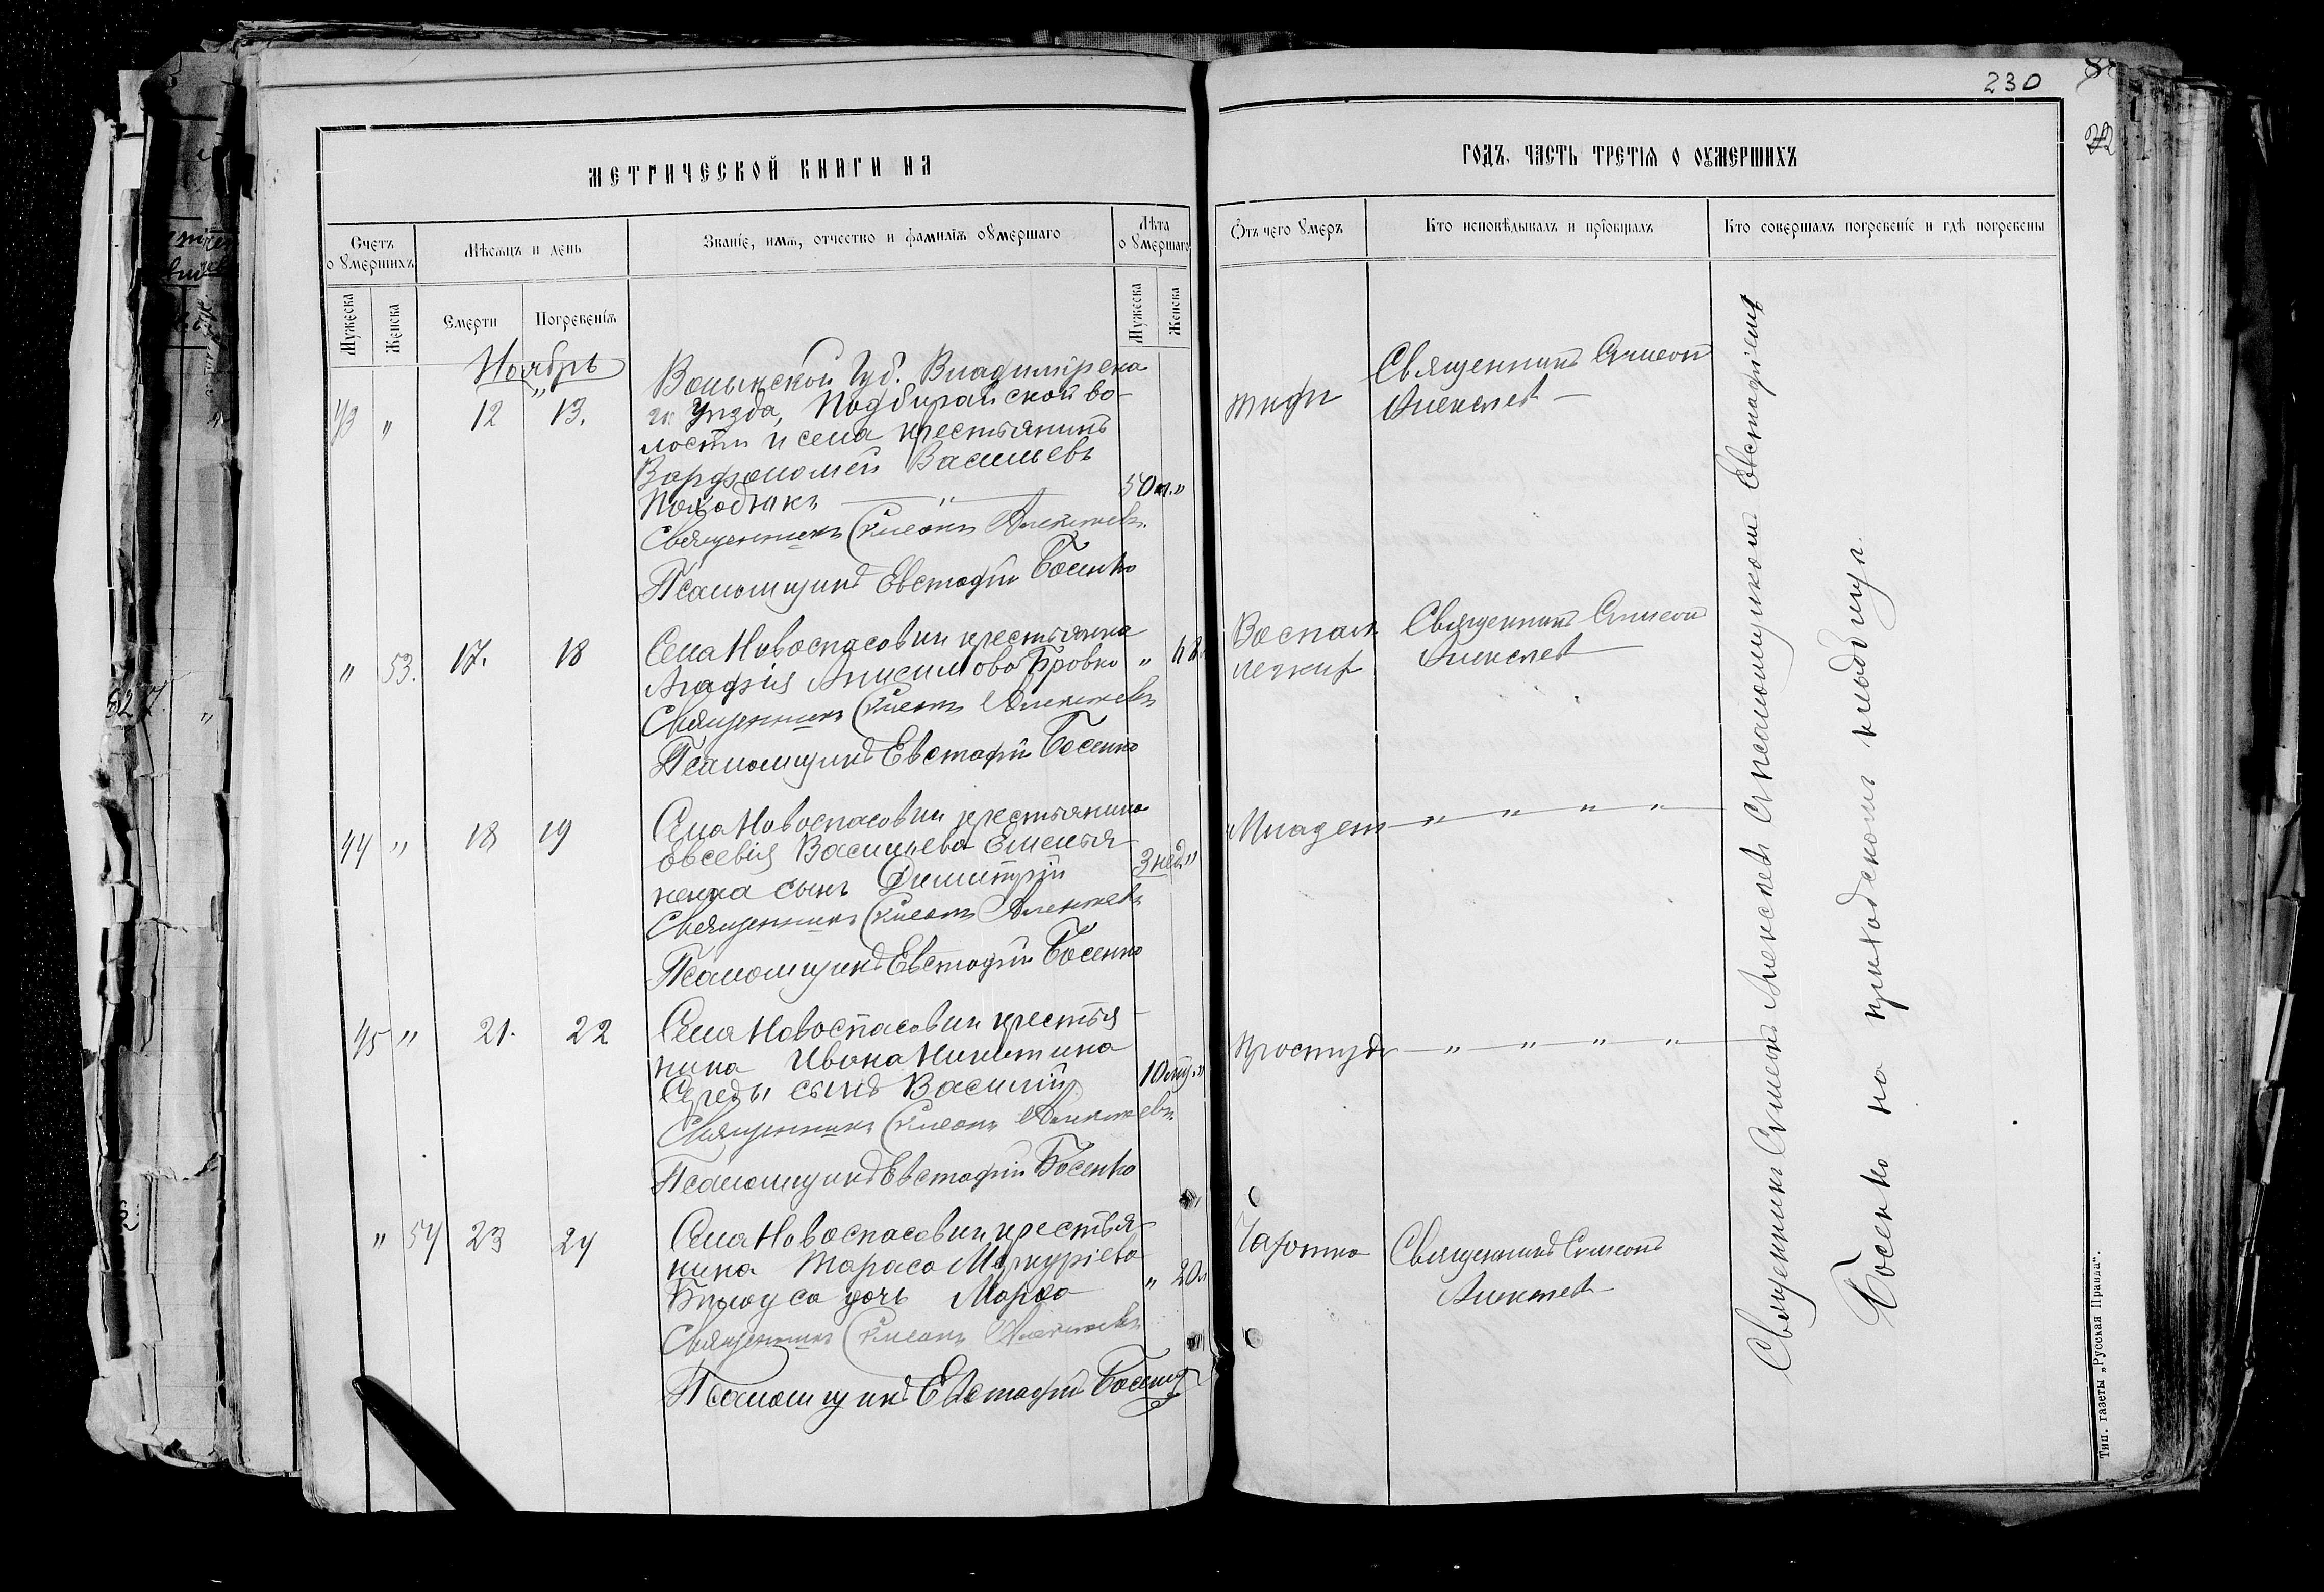 230
МЕТРИЧЕСКОЙ КНИГИ НА
ГОДЪ, ЧАСТЬ ТРЕТІЯ О ОУМЕРШИХЪ
Счетъ о умершихъ
Мѣсяцъ и день
Званіе, имя, отчество и фамилія оумершаго
Лѣта оумершаго
Отъ чего умеръ
Кто исповѣдывалъ и пріобщалъ
Кто совершалъ погребеніе и гдѣ погребены
Мужеска
Женска
Смерти
Погребенія
Мужеска
Женска
Ноябрь
43 " 12 13.
Волынской Губ. Владимірска
го Уѣзда, Подбирайской во-
лости и села крестьянинъ
Варфоломей Васильевъ
50 л. "
Священникъ Симеонъ Алексѣевъ
Псаломщикъ Евстафій Босенко
тифъ
Священникъ Симеон
Алексѣев
" 53. 17. 18
Села Новоспасовки крестьянка
Агафія Анисимова Бровко "
Священникъ Симеонъ Алексѣевъ
Псаломщикъ Евстафій Босенко
Воспал.
легкихъ
Священникъ Симеон
Алексѣев
44 " 18 19
Села Новоспасовки крестьянина
Евсевія Васильева Емелья-
ненка сынъ Димитрій
3 нед. "
Священникъ Симеонъ Алексѣевъ
Псаломщикъ Евстафій Босенко
Младен " " " "
45 " 21. 22
Села Новоспасовки крестья-
нина Ивана Никитина
Середы сынъ Василій
Священникъ Симеонъ Алексѣевъ
Псаломщикъ Евстафій Босенко
Простуды " " " "
" 54 23 24
Села Новоспасовки крестья-
нина Тараса Меркуріева
Бѣлоуса дочь Марѳа
" 20 л
Священникъ Симеонъ Алексѣевъ
Псаломщикъ Евстафій Босенко
Чахотка
Священникъ Симеонъ
Алексѣев
Священникъ Симеонъ Алексѣев съ псаломщикомъ Евстафіемъ
Босенко на приходскомъ кладбищѣ.
Тип. газеты „Русская Правда".